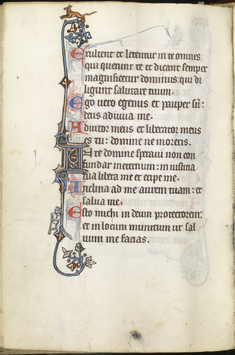 Exultent et letentur in te omnes
qui querunt te et dicant semper
magnificetur dominus qui di
ligunt salutare tuum.
Ego vero egenus et pauper sum:
deus adiuva me.
Adiutor meus et liberator meus
es tu: domine ne moreris.
In te domine speravi non con
fundar in eternum: in iusticia
tua libera me et eripe me.
Inclina ad me aurem tuam: et
salva me.
Esto michi in deum protectorem:
et in locum munitum ut sal
vum me facias.